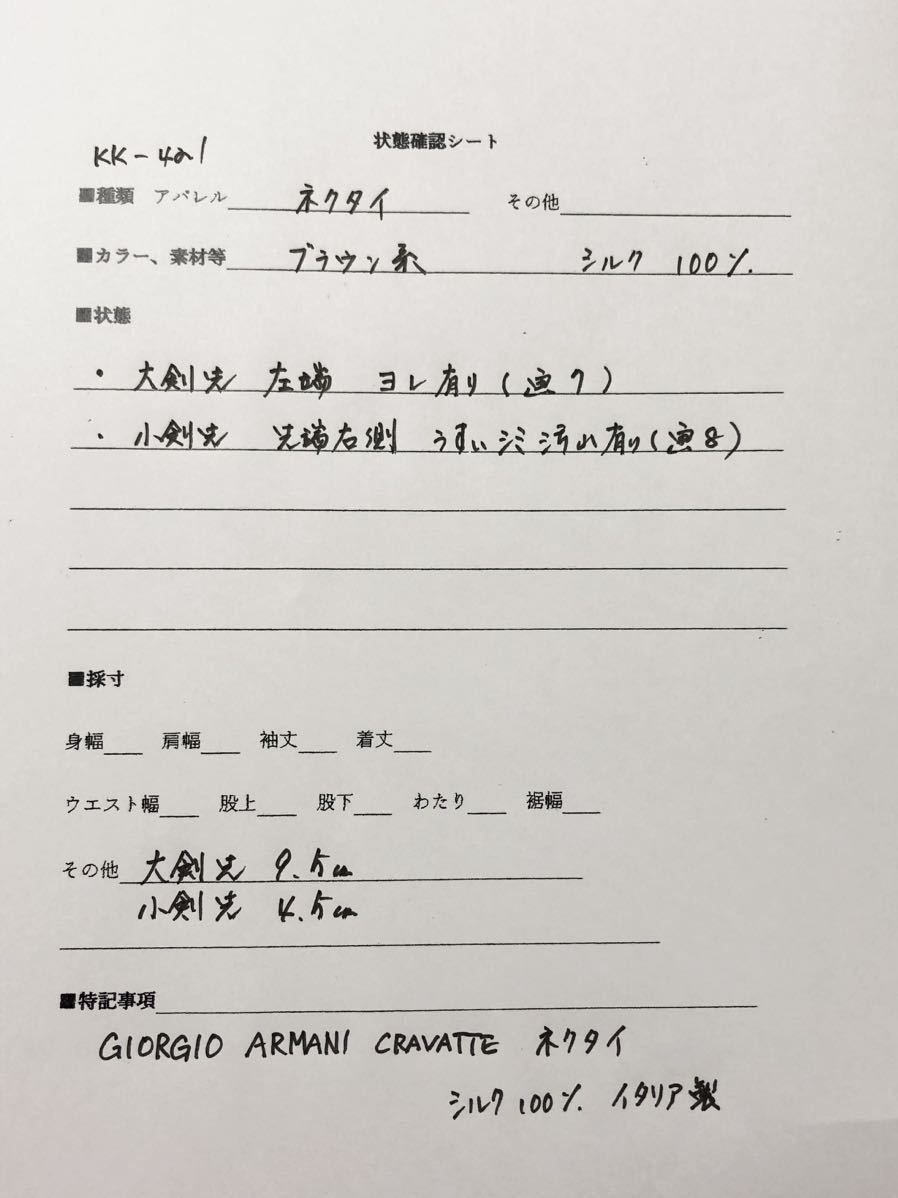 状態確認シート
KK-421
■種類 アパレル ネクタイ その他
■カラー、素材等 ブラウン系 シルク 100%
■状態
・ 大剣先 左端 ヨレ有り(画7)
・ 小剣先 先端右側 うすいシミ汚れ有り(画8)
■採寸
身幅 肩幅 袖丈 着丈
ウエスト幅 股上 股下 わたり 裾幅
その他 大剣先 9.5cm
小剣先 4.5cm
■特記事項
GIORGIO ARMANI CRAVATTE ネクタイ
シルク 100% イタリア製